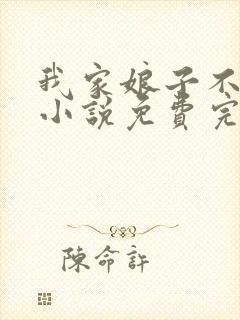 我家娘子不
小說免費完
陳命許